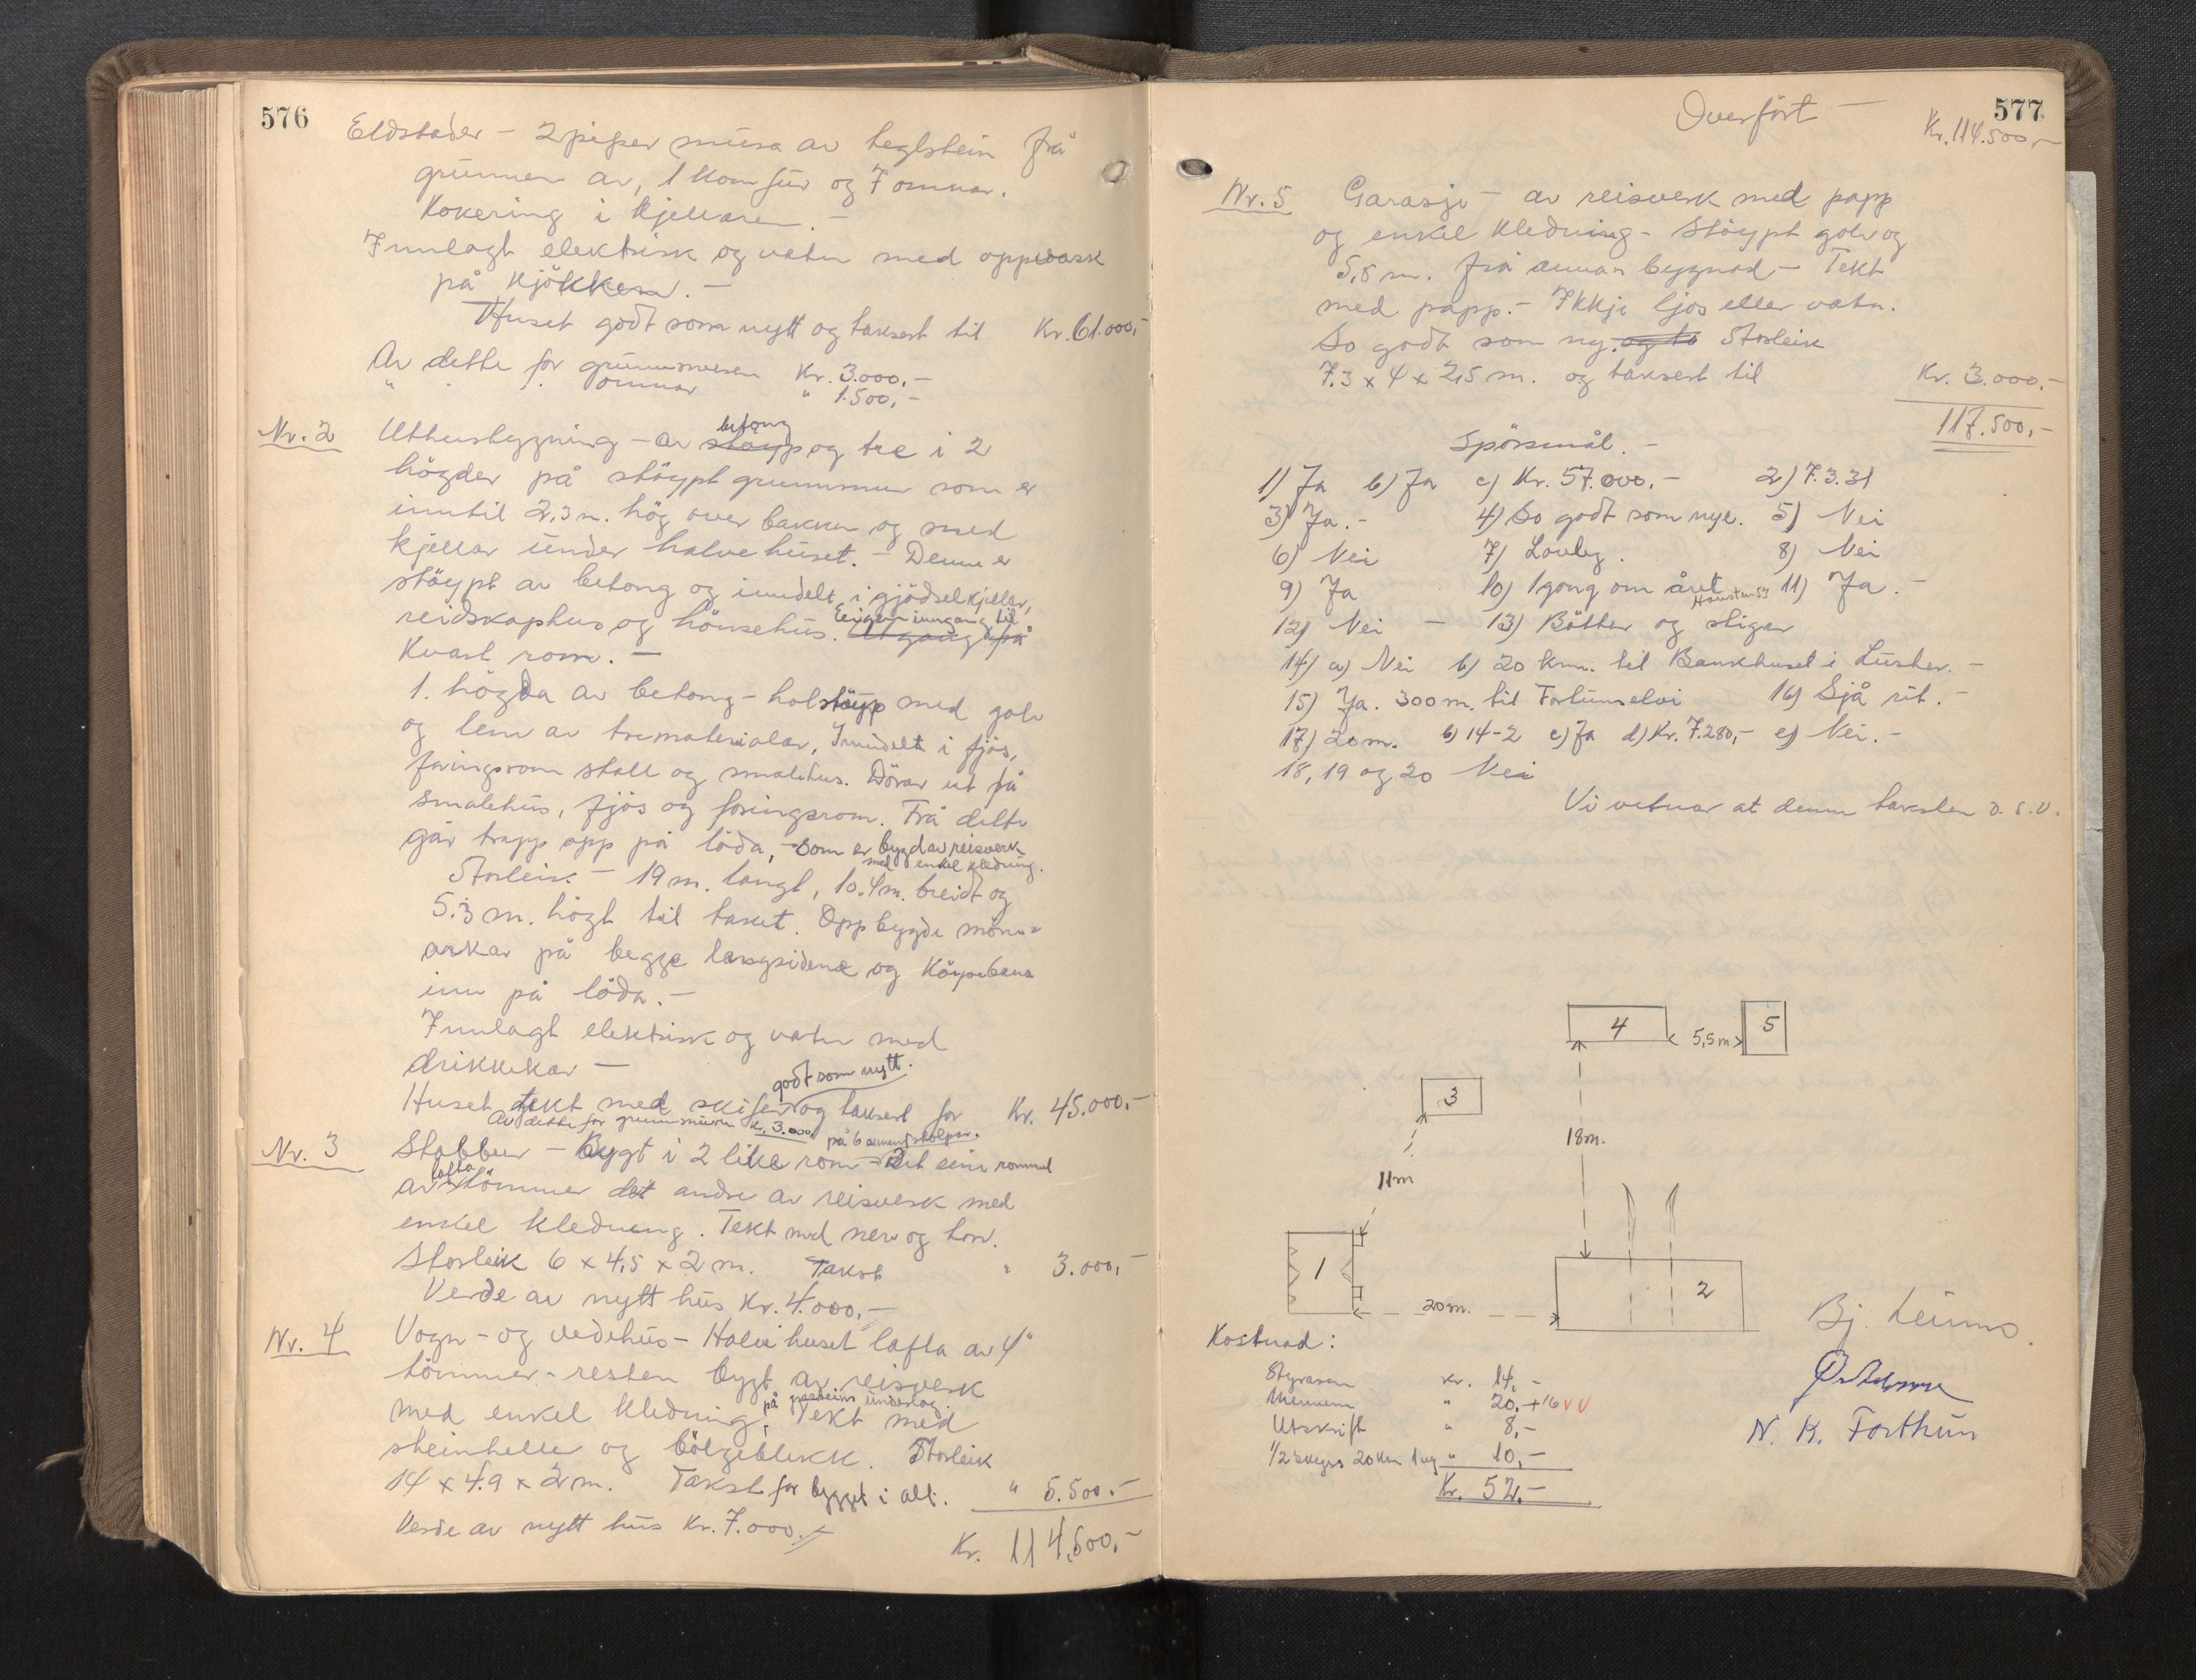 576
Eldstader - 2 piper mura av teglstein frå
grunnen av, 1 komfur og 7 omnar.
Kokering i kjellaren. -
Innlagt elektrisk og vatn med oppvask
på kjökken. -
Huset godt som nytt og taksert til Kr. 61.000,-
Av dette for grunnmuren Kr. 3.000,-
" " " omnar " 1.500,-
Nr. 2 Uthusbygning - av støyp betong og tre i 2
högder på støypt grunnmur som er
inntil 2,3 m. hög over bakken og med
kjellar under halve huset. - Denne er
støypt av betong og inndelt i gjödselkjellar,
reidskaphus og hönsehus. Utgang frå Eigen inngang til
kvart rom. -
1. högda av betong - holstøyp med golv
og lem av trematerialar, Inndelt i fjös,
foringsrom stall og smalehus. Dörar ut frå
smalehus, fjös og foringsrom. Frå dette
går trapp opp på löda, - som er bygd av reisverk
med enkel kledning.
Storleik - 19 m. langt, 10,4 m. breidt og
5,3 m. högt til taket. Oppbygde möne=
arkar på begge langsidene og köyrebrua
inn på löda. -
Innlagt elektrisk og vatn med
drikkekar -
godt som nytt.
Huset tekt med skifer og taksert for Kr. 45.000,-
Av dette for grunnmuren kr. 3.000
på 6 sementstolpar.
Nr. 3 Stabbur - Bygt i 2 like rom - Det eine rommet
av lafta tömmer det andre av reisverk med
enkel kledning. Tekt med never og torv.
Storleik 6 x 4,5 x 2 m. Takst " 3.000,-
Verde av nytt hus Kr. 4.000,-
Nr. 4 Vogn - og vedehus - Halve huset lafta av 4"
tömmer - resten bygt av reisverk
på gråsteins underlag.
med enkel kledning, Tekt med
steinheller og bölgeblekk. Storleik
14 x 4.9 x 2 m. Takst for bygget i alt. " 5.500.-
Verde av nytt hus Kr. 7.000.-
Kr. 114,500,-
577
Overfört - Kr. 114.500,-
Nr. 5 Garasje - av reisverk med papp
og enkel kledning - Støypt golv og
5,5 m. frå annan bygnad - Tekt
med papp. - Ikkje ljos eller vatn.
So godt som ny. og ta Storleik
7.3 x 4 x 2,5 m. og taksert til Kr. 3.000,-
117.500,-
Spörsmål. -
1) Ja b) Ja c) Kr. 57.000.- 2) 7.3.31
3) Ja. - 4) So godt som nye. 5) Nei
6) Nei 7) Lovleg. 8) Nei
9) Ja 10) 1 gong om året Hausten 53 11) Ja. -
12) Nei - 13) Bötter og stigar
14) a) Nei b) 20 km. til Bankhuset i Luster. -
15) Ja. 300 m. til Fortunselvi 16) Sjå rit. -
17) 20 m. b) 14-2 c) Ja d) Kr. 7.280,- e) Nei. -
18, 19 og 20 Nei
Vi vitnar at denne taksten o. s. v.
4 5,5 m 5
3
18 m.
11 m
1 20 m. 2
Bj. Leirmo.
N. K. Forthun
Kostnad:
Styraren kr. 14,-
Mennene " 20,- +16 V V
Utskrift " 8,-
1/2 skyss 20 km " 10,-
Kr. 52,-